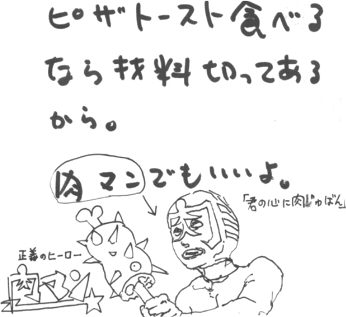 ピザトースト食べる
なら材料切ってある
から。
肉マンでもいいよ。
「君の心に肉じゅばん」
正義のヒーロー
肉マン